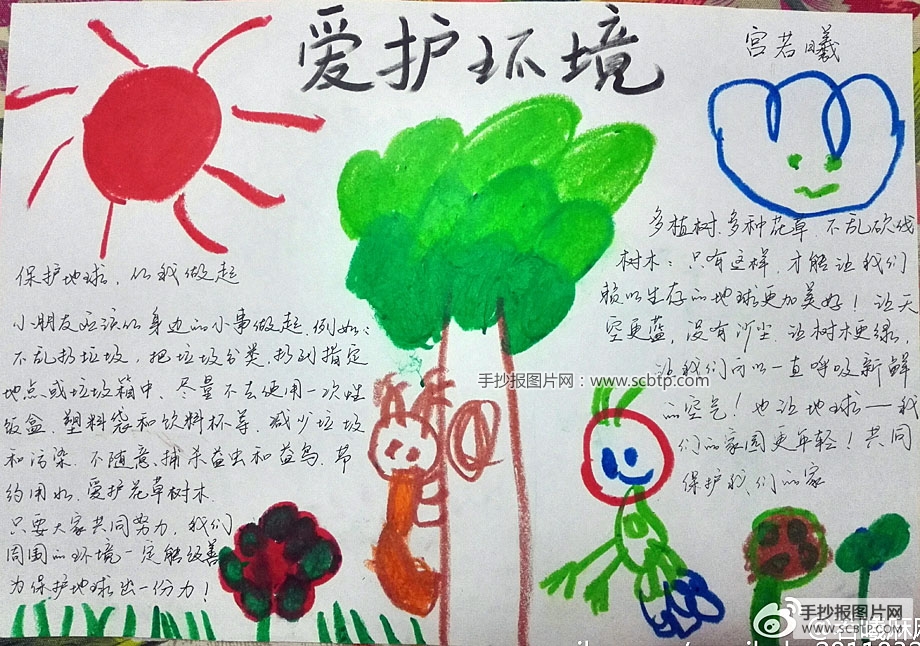 爱护环境
宫若曦
保护地球，从我做起
小朋友应该从身边的小事做起，例如：
不乱扔垃圾，把垃圾分类，扔到指定
地点或垃圾箱中，尽量不去使用一次性
饭盒、塑料袋和饮料杯等，减少垃圾
和污染，不随意捕杀益虫和益鸟，节
约用水，爱护花草树木.
只要大家共同努力，我们
周围的环境一定能改善
为保护地球出一份力！
多植树、多种花草，不乱砍伐
树木：只有这样，才能让我们
赖以生存的地球更加美好！让天
空更蓝，没有沙尘，让树木更绿，
让我们可以一直呼吸新鲜
的空气！也让地球——我
们的家园更年轻！共同
保护我们的家
手抄报图片网：www.scbtp.com
手抄报图片网
WWW.SCBTP.COM